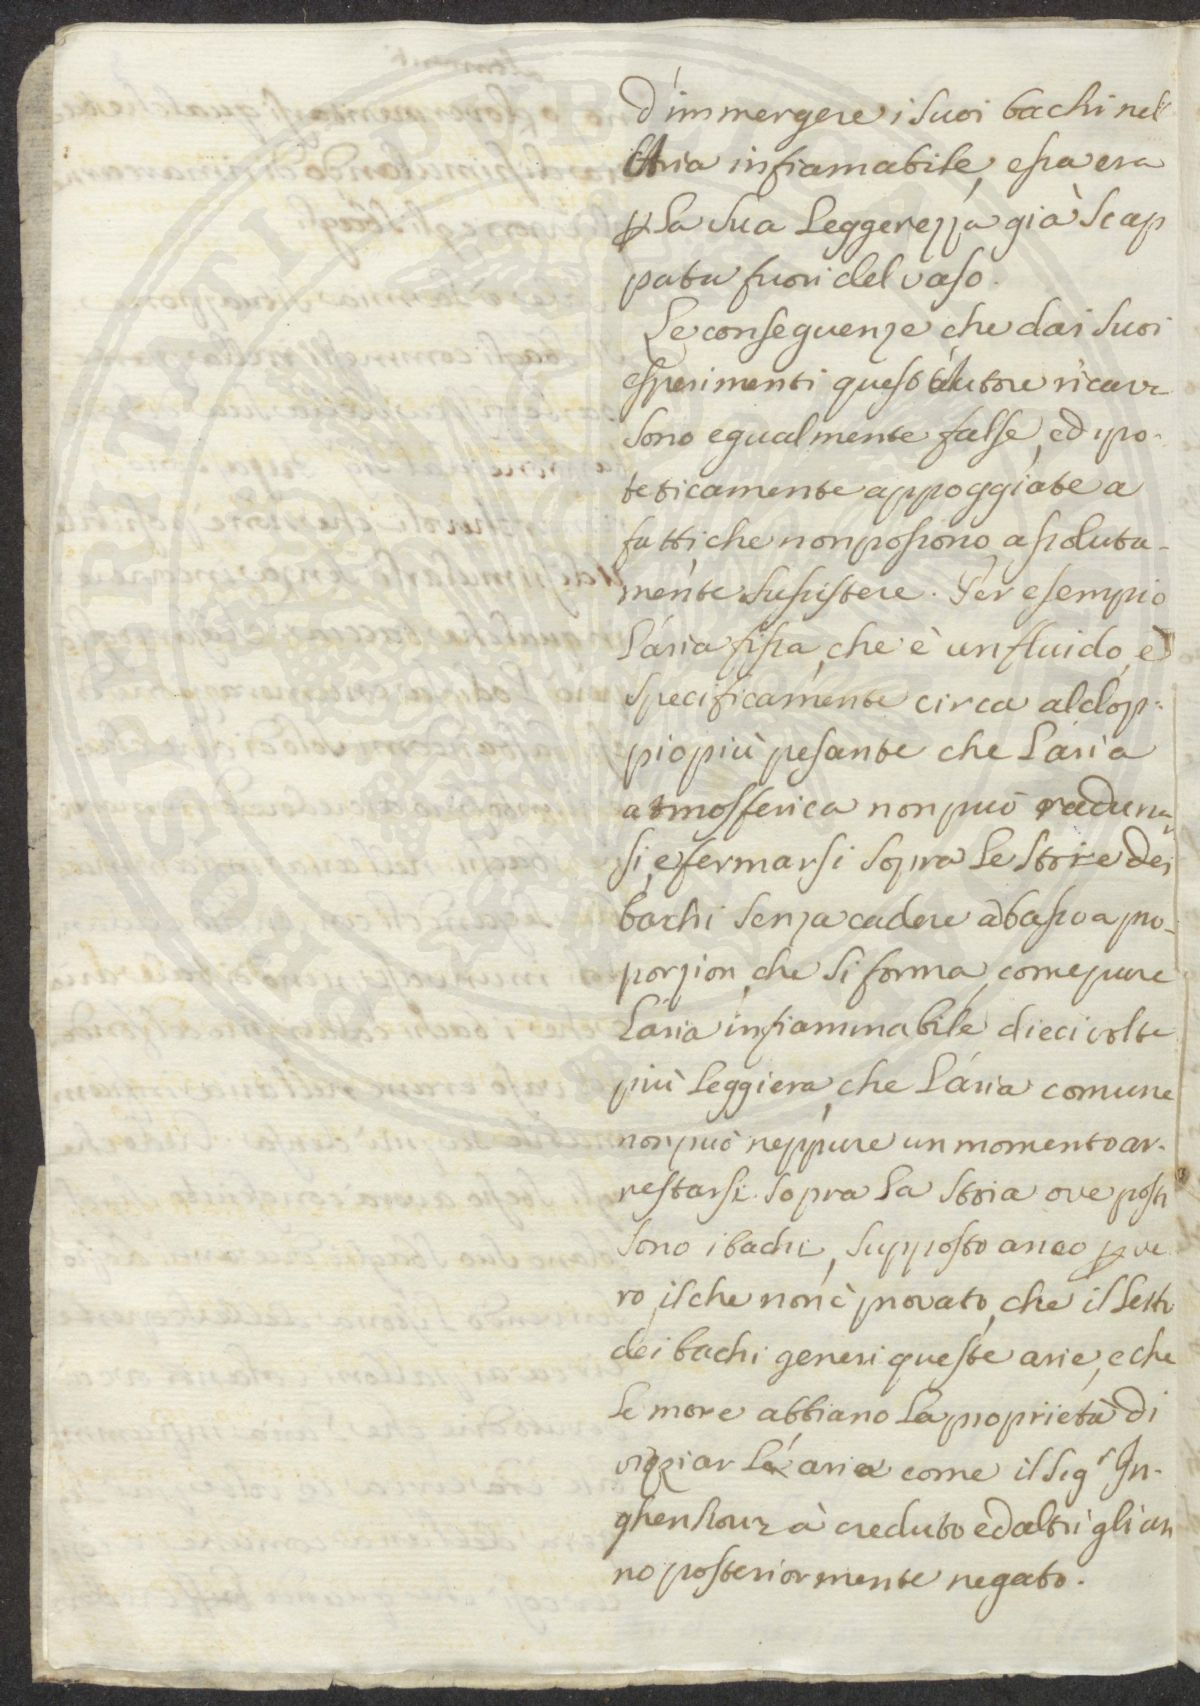 d'immergere i suoi bachi nel
Aria infiamabile, essa era
p la sua leggerezza già scap
pata fuori del vaso.
Le conseguenze che dai suoi
esperimenti quest'Autore ricava
sono egualmente false, ed ipo-
teticamente appoggiate a
fatti che non possono assoluta-
mente sussistere. Per esempio
l'aria fissa, che è un fluido, e
specificamente circa al dop-
pio più pesante che l'aria
atmosferica non può radunar
si, e fermarsi sopra le storie dei
bachi senza cadere abasso a pro-
porzion che si forma, come pure
l'aria infiammabile dieci volte
più leggiera, che l'aria comune
non può neppure un momento ar-
restarsi sopra la storia ove posti
sono i bachi, supposto anco p ve
ro, il che non è provato, che il letto
dei bachi generi queste arie, e che
le more abbiano la proprietà di
viziar l'aria come il Sigr In-
ghenhouz à creduto ed altri gli an
no posteriormente negato.